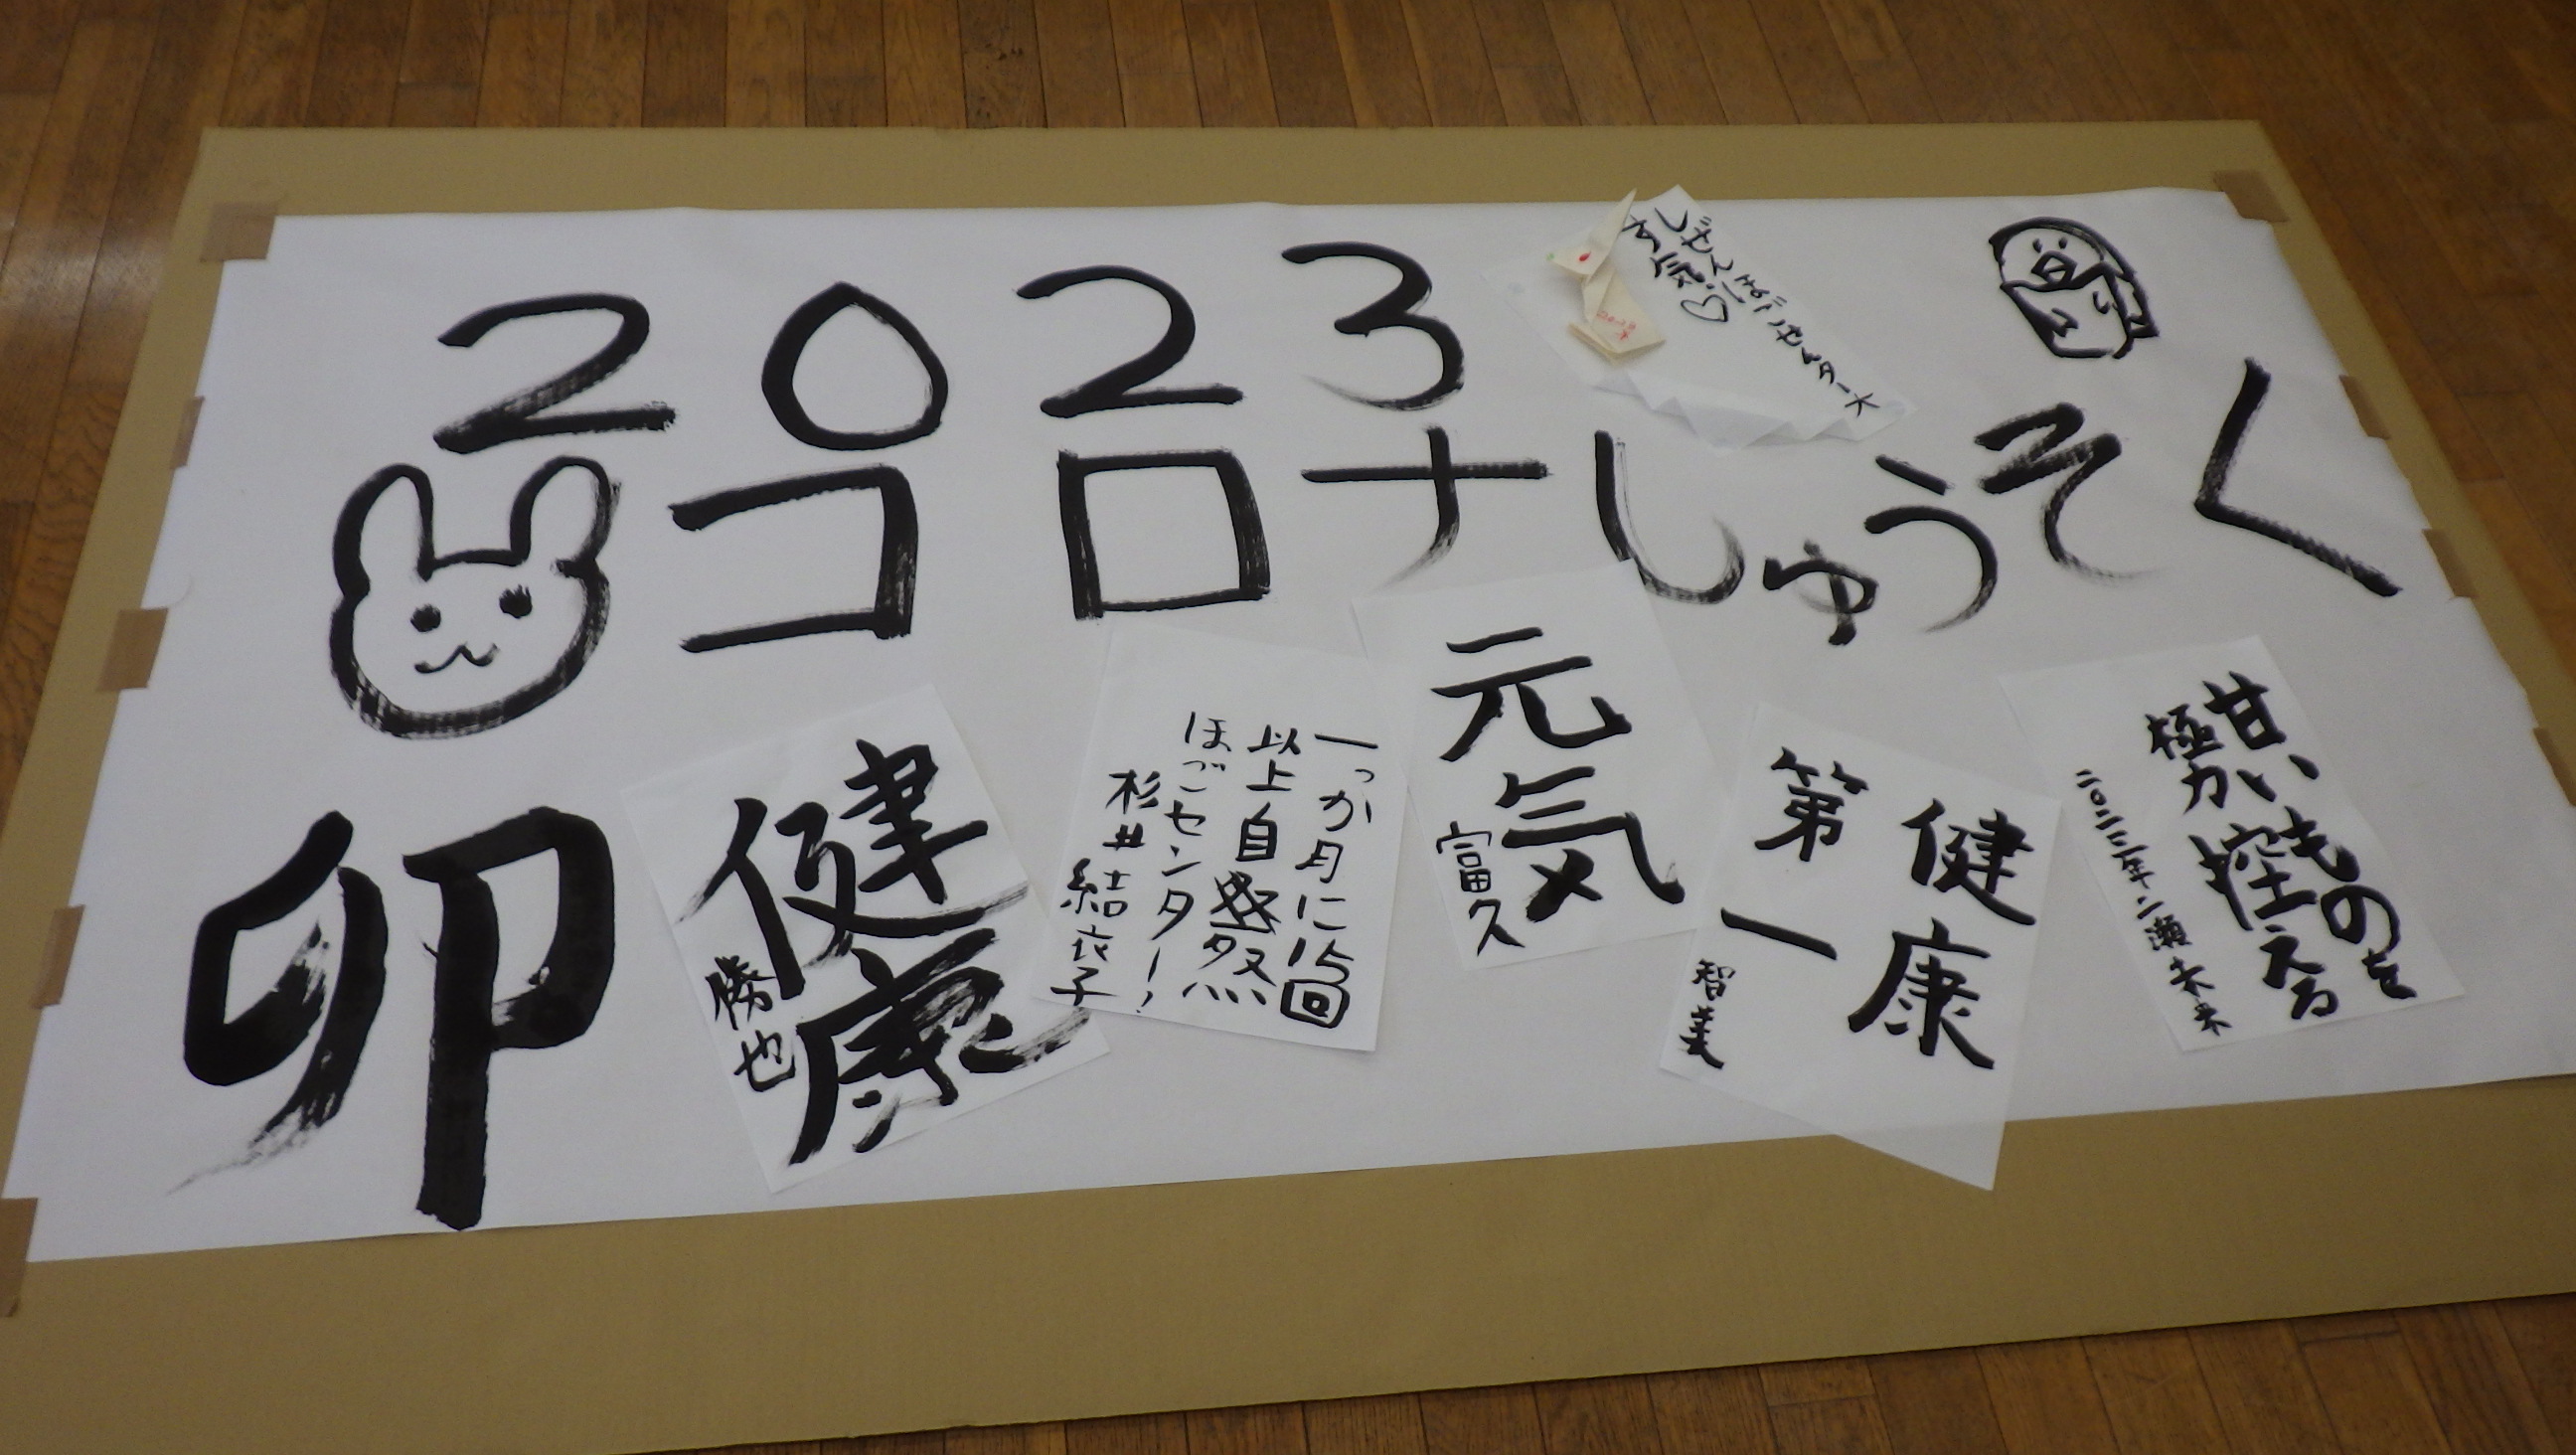 2023
コロナしゅうそく
卯
健康
勝也
一っか月に15回
以上自然
ほごセンター!
杉井結衣子
元気
富久
健康
第一
智美
甘いものを
極力控える
二〇二三年
未来
しぜんほごせんたー大
す気♡